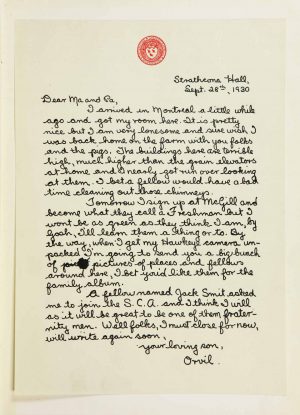 Strathcona Hall,
Sept. 28th, 1930
Dear Ma and Pa,
I arrived in Montreal a little while
ago and got my room here. It is pretty
nice but I am very lonesome and sure wish I
was back home on the farm with you folks
and the pigs. The buildings here are terrible
high, much higher than the grain elevators
at home and I nearly got run over looking
at them. I bet a fellow would have a bad
time cleaning out those chimneys.
Tomorrow I sign up at McGill and
become what they call a Freshman but I
wont be as green as they think I am, by
Gosh, I'll learn them a thing or to. By
the way, when I get my Hawkeye camera un-
packed I'm going to send you a big bunch
of pictures of places and fellows
around here, I bet you'd like them for the
family album.
A fellow named Jack Smit asked
me to join the S.C.A. and I think I will
as it will be great to be one of them frater-
nity men. Well folks, I must close for now,
will write again soon,
your loving son,
Orvil.